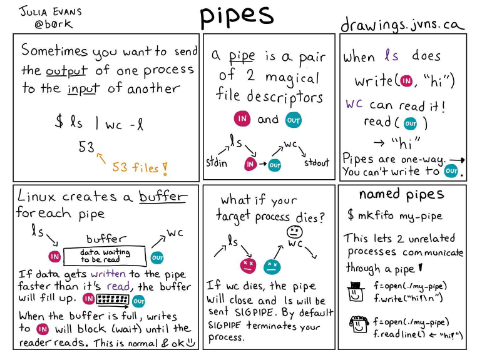 JULIA EVANS
@b0rk
pipes
drawings.jvns.ca
Sometimes you want to send
the output of one process
to the input of another
$ ls | wc -l
53
53 files!
a pipe is a pair
of 2 magical
file descriptors
IN and OUT
ls
wc
stdin
IN
OUT
stdout
when ls does
write(IN, "hi")
wc can read it!
read(OUT)
→ "hi"
Pipes are one-way. →
You can't write to OUT.
Linux creates a buffer
for each pipe
ls
buffer
wc
IN
data waiting
to be read
OUT
If data gets written to the pipe
faster than it's read, the buffer
will fill up. IN OUT
When the buffer is full, writes
to IN will block (wait) until the
reader reads. This is normal & ok
what if your
target process dies?
ls
wc
If wc dies, the pipe
will close and ls will be
sent SIGPIPE. By default
SIGPIPE terminates your
process.
named pipes
$ mkfifo my-pipe
This lets 2 unrelated
processes communicate
through a pipe!
f=open(./my-pipe)
f.write("hi!\n")
f=open(./my-pipe)
f.readline() ← "hi!"